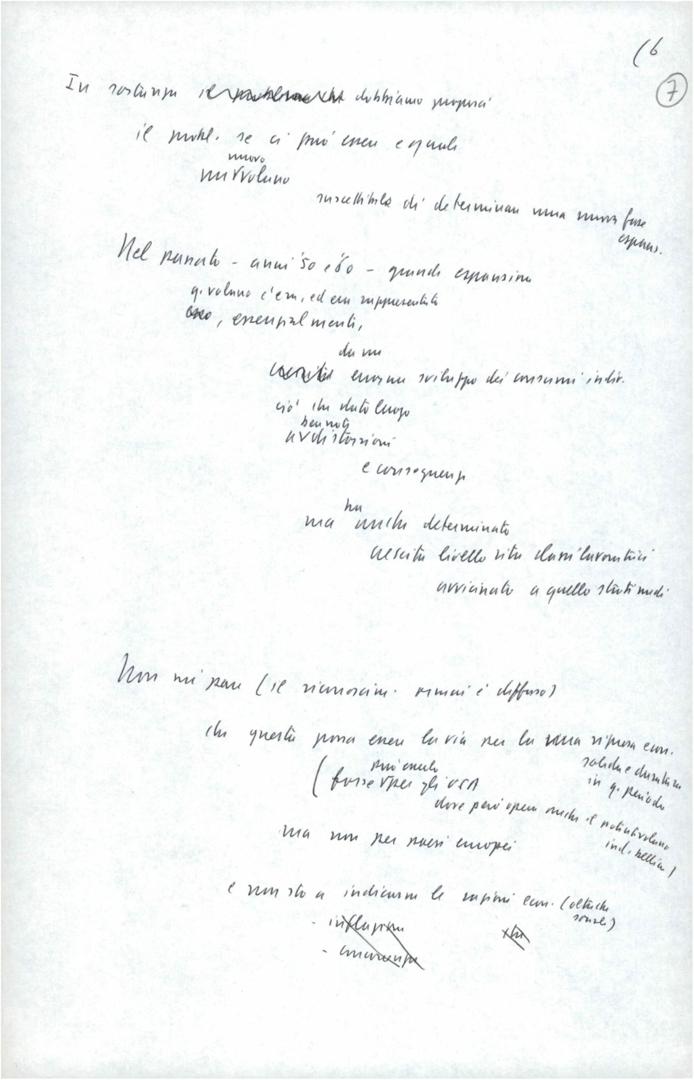 (6
7
In sostanza dobbiamo proporci
il probl. se ci può essere e quale
nuovo
volano
suscettibile di determinare una nuova fase
espans.
Nel passato – anni '50 e '60 – grande espansione
q. volano c'era, ed era rappresentato
essenzialmente,
da un
enorme sviluppo dei consumi indiv.
ciò che dato luogo
ben note
a distorsioni
e conseguenze
ha
ma anche determinato
crescita livello vita classi lavoratrici
avvicinato a quello strati medi
Non mi pare (il riconoscim. ormai è diffuso)
che questa possa essere la via per la ripresa econ.
solida e duratura
in q. periodo
può esserlo
(forse per gli USA
dove però opera anche il potente volano
ind. bellica)
ma non per paesi europei
e non sto a indicarne le ragioni econ. (oltreché
sociali)
- inflazione
- concorrenza